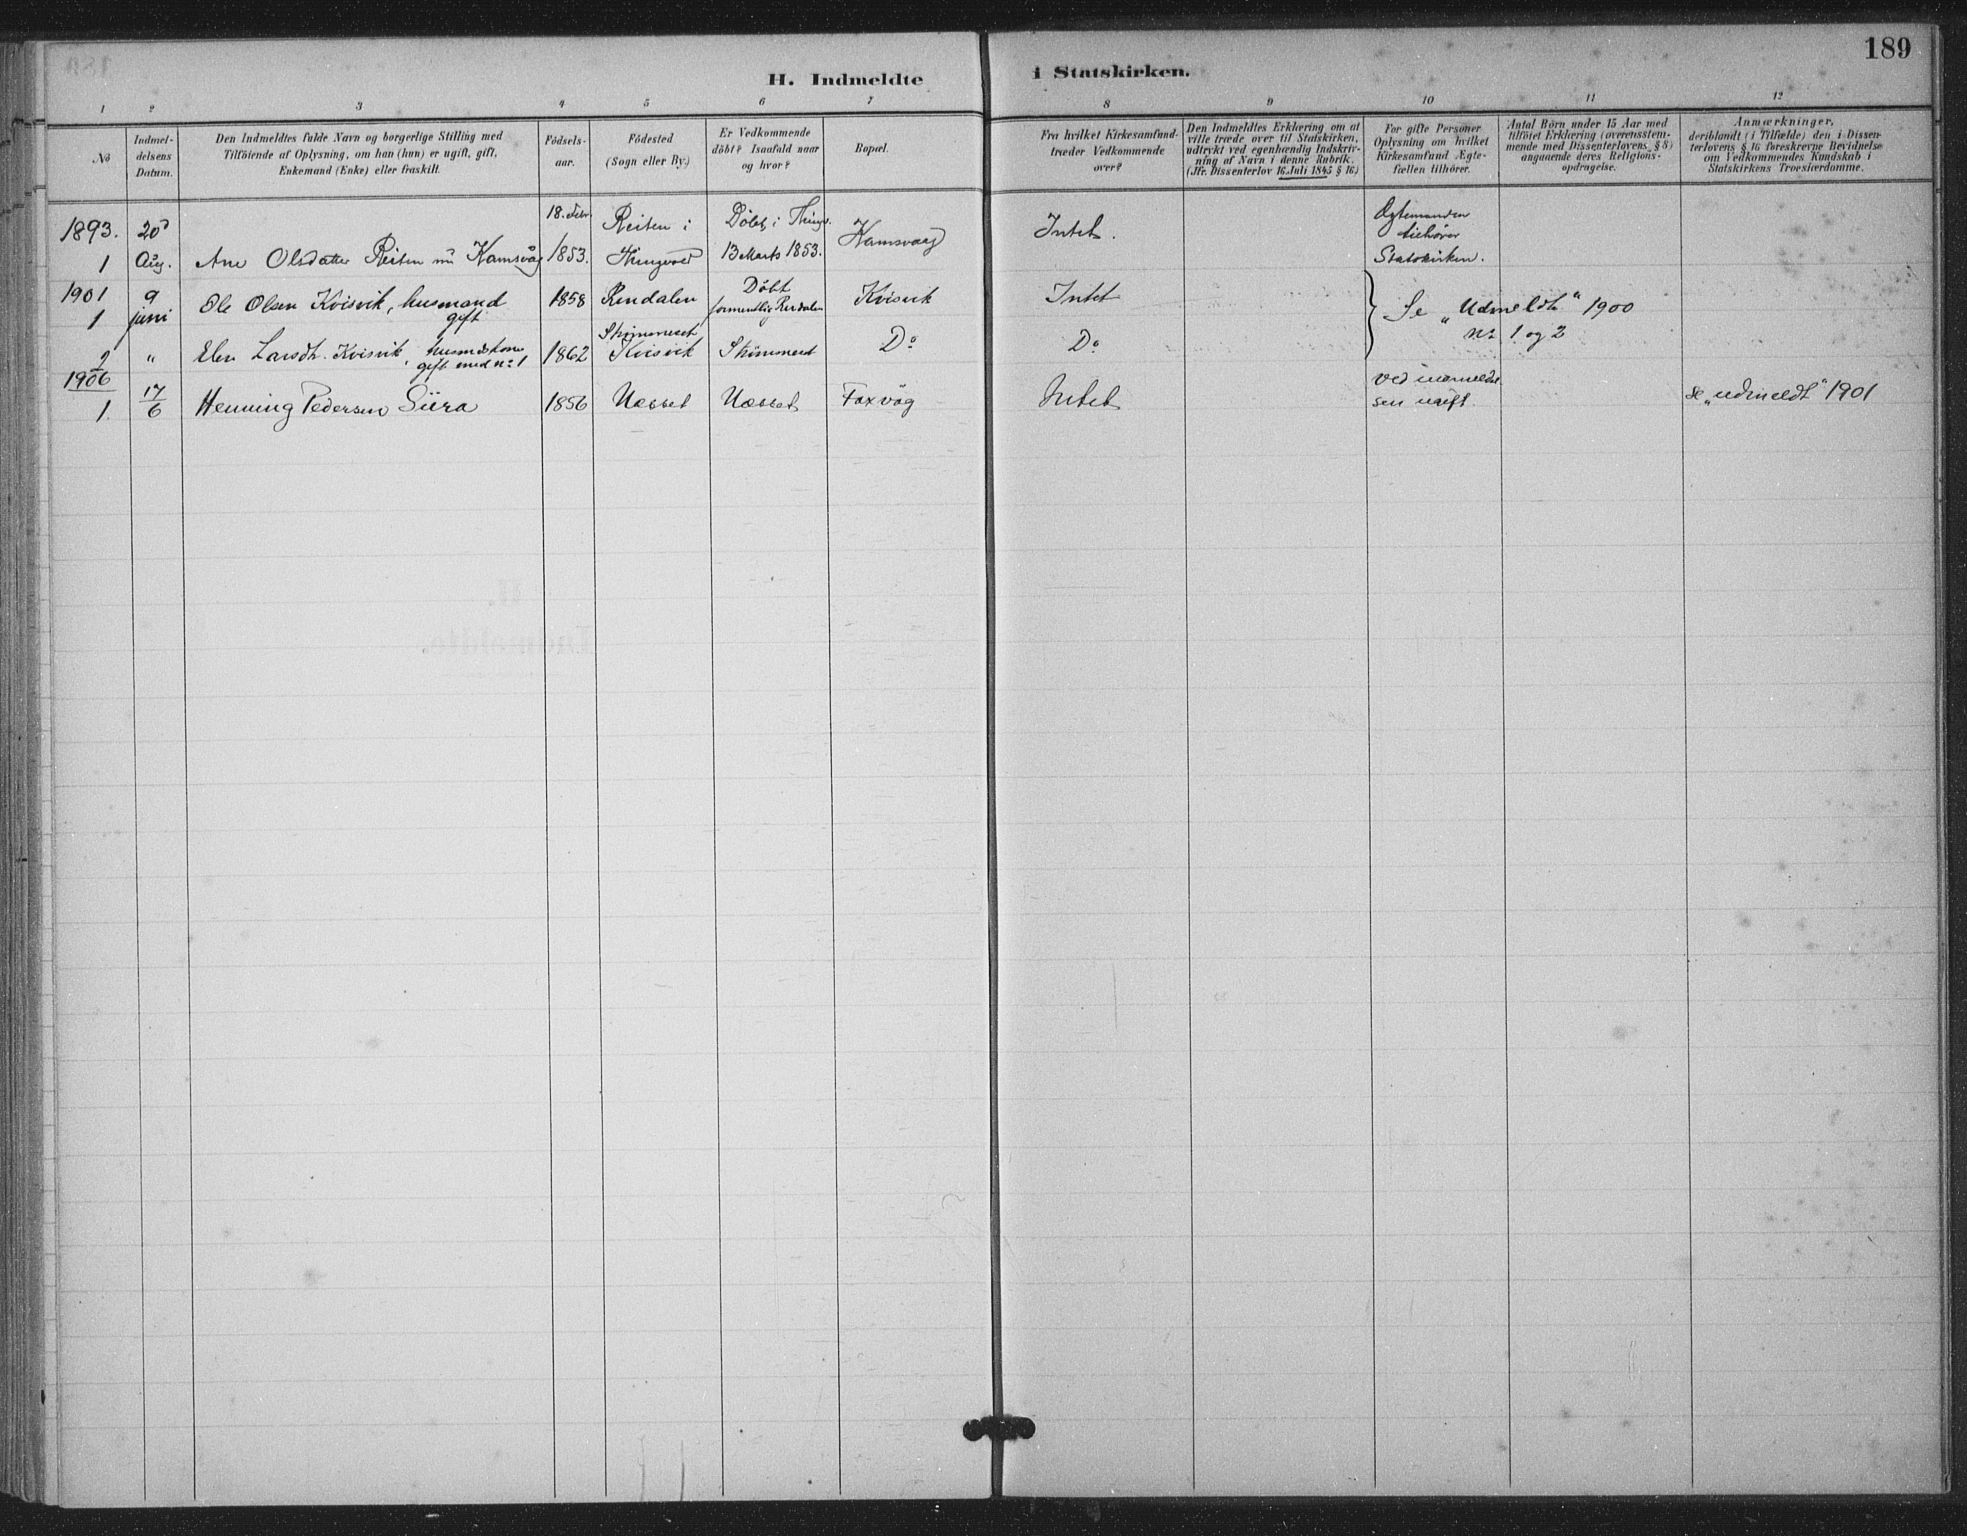 189
H. Indmeldte i Statskirken.
1 2 3 4 5 6 7 8 9 10 11 12
No
Indmel-
delsens
Datum.
Den Indmeldtes fulde Navn og borgerlige Stilling med
Tilföiende af Oplysning, om han (hun) er ugift, gift,
Enkemand (Enke) eller fraskilt.
Födsels-
aar.
Födested
(Sogn eller By.)
Er Vedkommende
döbt? Isaafald naar
og hvor?
Bopæl.
Fra hvilket Kirkesamfund
træder Vedkommende
over?
Den Indmeldtes Erklæring om at
ville træde over til Statskirken,
udtrykt ved egenhændig Indskriv-
ning af Navn i denne Rubrik.
(Jfr. Dissenterlov 16 Juli 1845 § 16)
For gifte Personer
Oplysning om hvilket
Kirkesamfund Ægte-
fællen tilhörer.
Antal Börn under 15 Aar med
tilföiet Erklæring (overensstem-
mende med Dissenterlovens § 8)
angaaende deres Religions-
opdragelse.
Anmærkninger,
deriblandt (i Tilfælde) den i Dissen-
terlovens § 16 foreskrevne Bevidnelse
om Vedkommendes Kundskab i
Statskirkens Troeslærdomme.
1893. 20d 18. Febr. Reiten i Döbt i Thingv. Kamsvaag Intet. Ægtemanden
tilhörer
1 Aug. Ane Olsdatter Reiten nu Kamsvåg 1853. Thingvold 13 Marts 1853. Statskirken.
1901 9 Ole Olsen Kvisvik, husmand 1858 Rendalen Döbt Kvisvik Intet Se „Udmeldt" 1900
1 juni gift formentlig Rendalen
No 1 og 2
2 " Elen Larsdtr. Kvisvik, husmdskone 1862 Skömmeset Skömmeset Do Do
gift med no 1 Kvisvik
1906 17 Henning Pedersen Siira 1856 Nesset Nesset Foxvåg Intet Ved indmeldel
1. 6 sen ugift. se „udmeldt" 1901